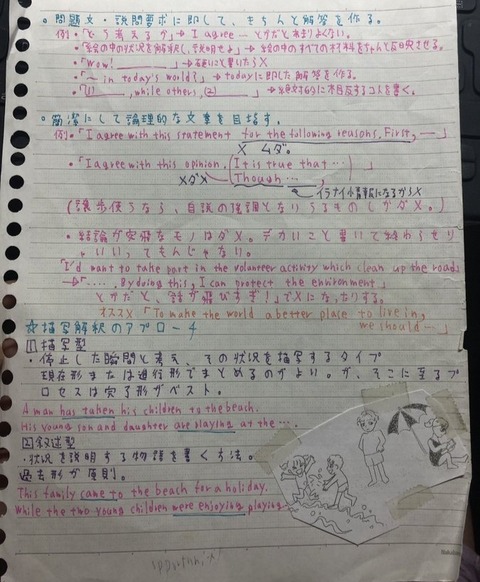 問題文・設問要求に即して、きちんと解答を作る。
例・「どう考えるか」→ I agree … とかだとあまりよくない。
・「絵の中の状況を解釈し、説明せよ」→ 絵の中のすべての材料をちゃんと反映させる。
・「Wow! 」→ に書いたらX
・「~ in today's world?」→ todayに即した解答を作る。
・「(1) , while others, (2) 」→絶対的に相反するコトを書く。
簡潔にして論理的な文章を目指す。
例・「I agree with this statement for the following reasons. First, ―」
X ムダ。
・「I agree with this opinion, (It is true that …) 」
XダX Though …,
イラナイ情報になるからX
(譲歩使うなら、自説の強調となりうるものしかダX。)
・結論が突飛なモノはダX。デカいこと書いて終わらせりゃいいってもんじゃない。
「I'd want to take part in the volunteer activity which clean up the roads
→「……, By doing this, I can protect the environment」
とかだと、「話が飛びすぎ!」でXになったりする。
オススX 「To make the world a better place to live in,
we should …」
☆描写解釈のアプローチ
[1]描写型
・停止した瞬間と考え、その状況を描写するタイプ
現在形または進行形でまとめるのがよい。が、そこに至るプ
ロセスは完了形がベスト。
A man has taken his children to the beach.
His young son and daughter are playing at the ….
[2]叙述型
・状況を説明する物語を書く方法。
過去形が原則。
This family came to the beach for a holiday.
While the two young children were enjoying playing